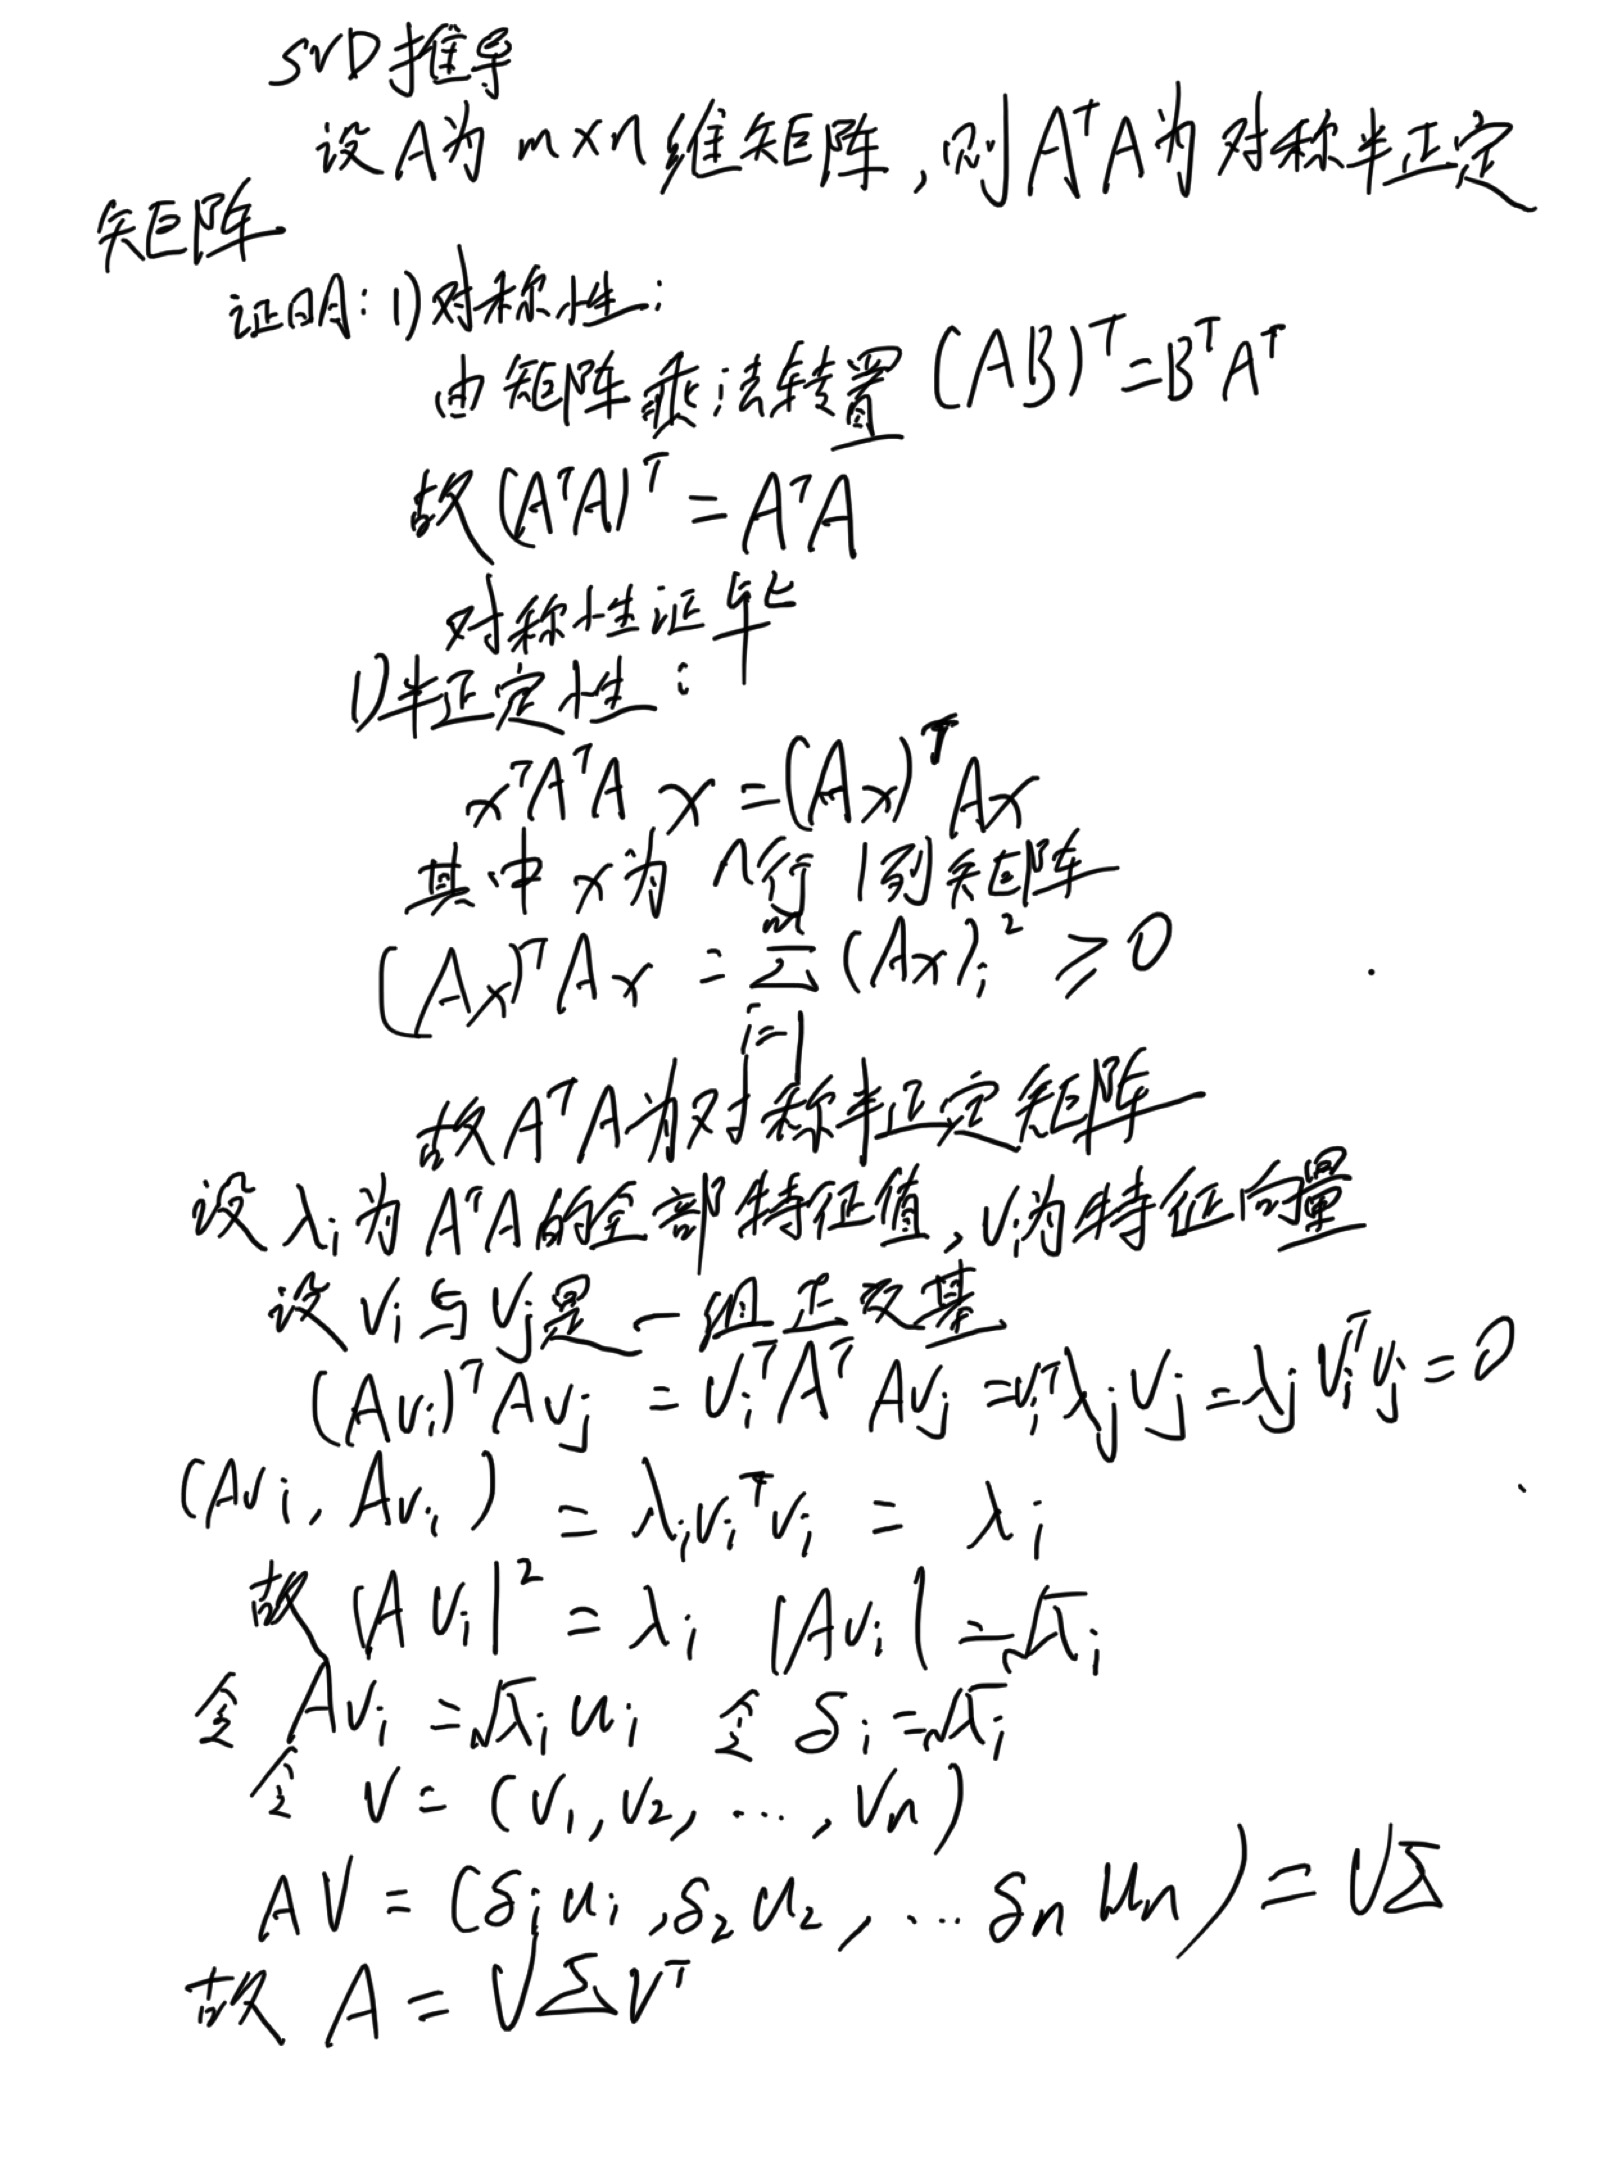 SVD推导
设A为 m×n维矩阵,则AᵀA为对称半正定
矩阵
证明: 1)对称性:
由矩阵乘法转置 (AB)ᵀ=BᵀAᵀ
故(AᵀA)ᵀ=AᵀA
对称性证毕
1)半正定性:
xᵀAᵀA x=(Ax)ᵀAx
其中x为 n行1列矩阵
(Ax)ᵀAx = ∑_{i=1}^{m} (Ax)ᵢ² ≥0
故AᵀA为对称半正定矩阵
设λᵢ为AᵀA的全部特征值,vᵢ为特征向量
设vᵢ与vⱼ是一组正交基
(Avᵢ)ᵀAvⱼ = vᵢᵀAᵀAvⱼ =vᵢᵀλⱼvⱼ=λⱼvᵢᵀvⱼ=0
(Avᵢ, Avᵢ) = λᵢvᵢᵀvᵢ = λᵢ
故 |Avᵢ|² = λᵢ |Avᵢ| =√λᵢ
令 Avᵢ =√λᵢ uᵢ 令 δᵢ=√λᵢ
令 V = (v₁,v₂, ..., vₙ)
AV = (δᵢuᵢ,δ₂u₂, ... δₙuₙ) = U∑
故 A = U∑Vᵀ